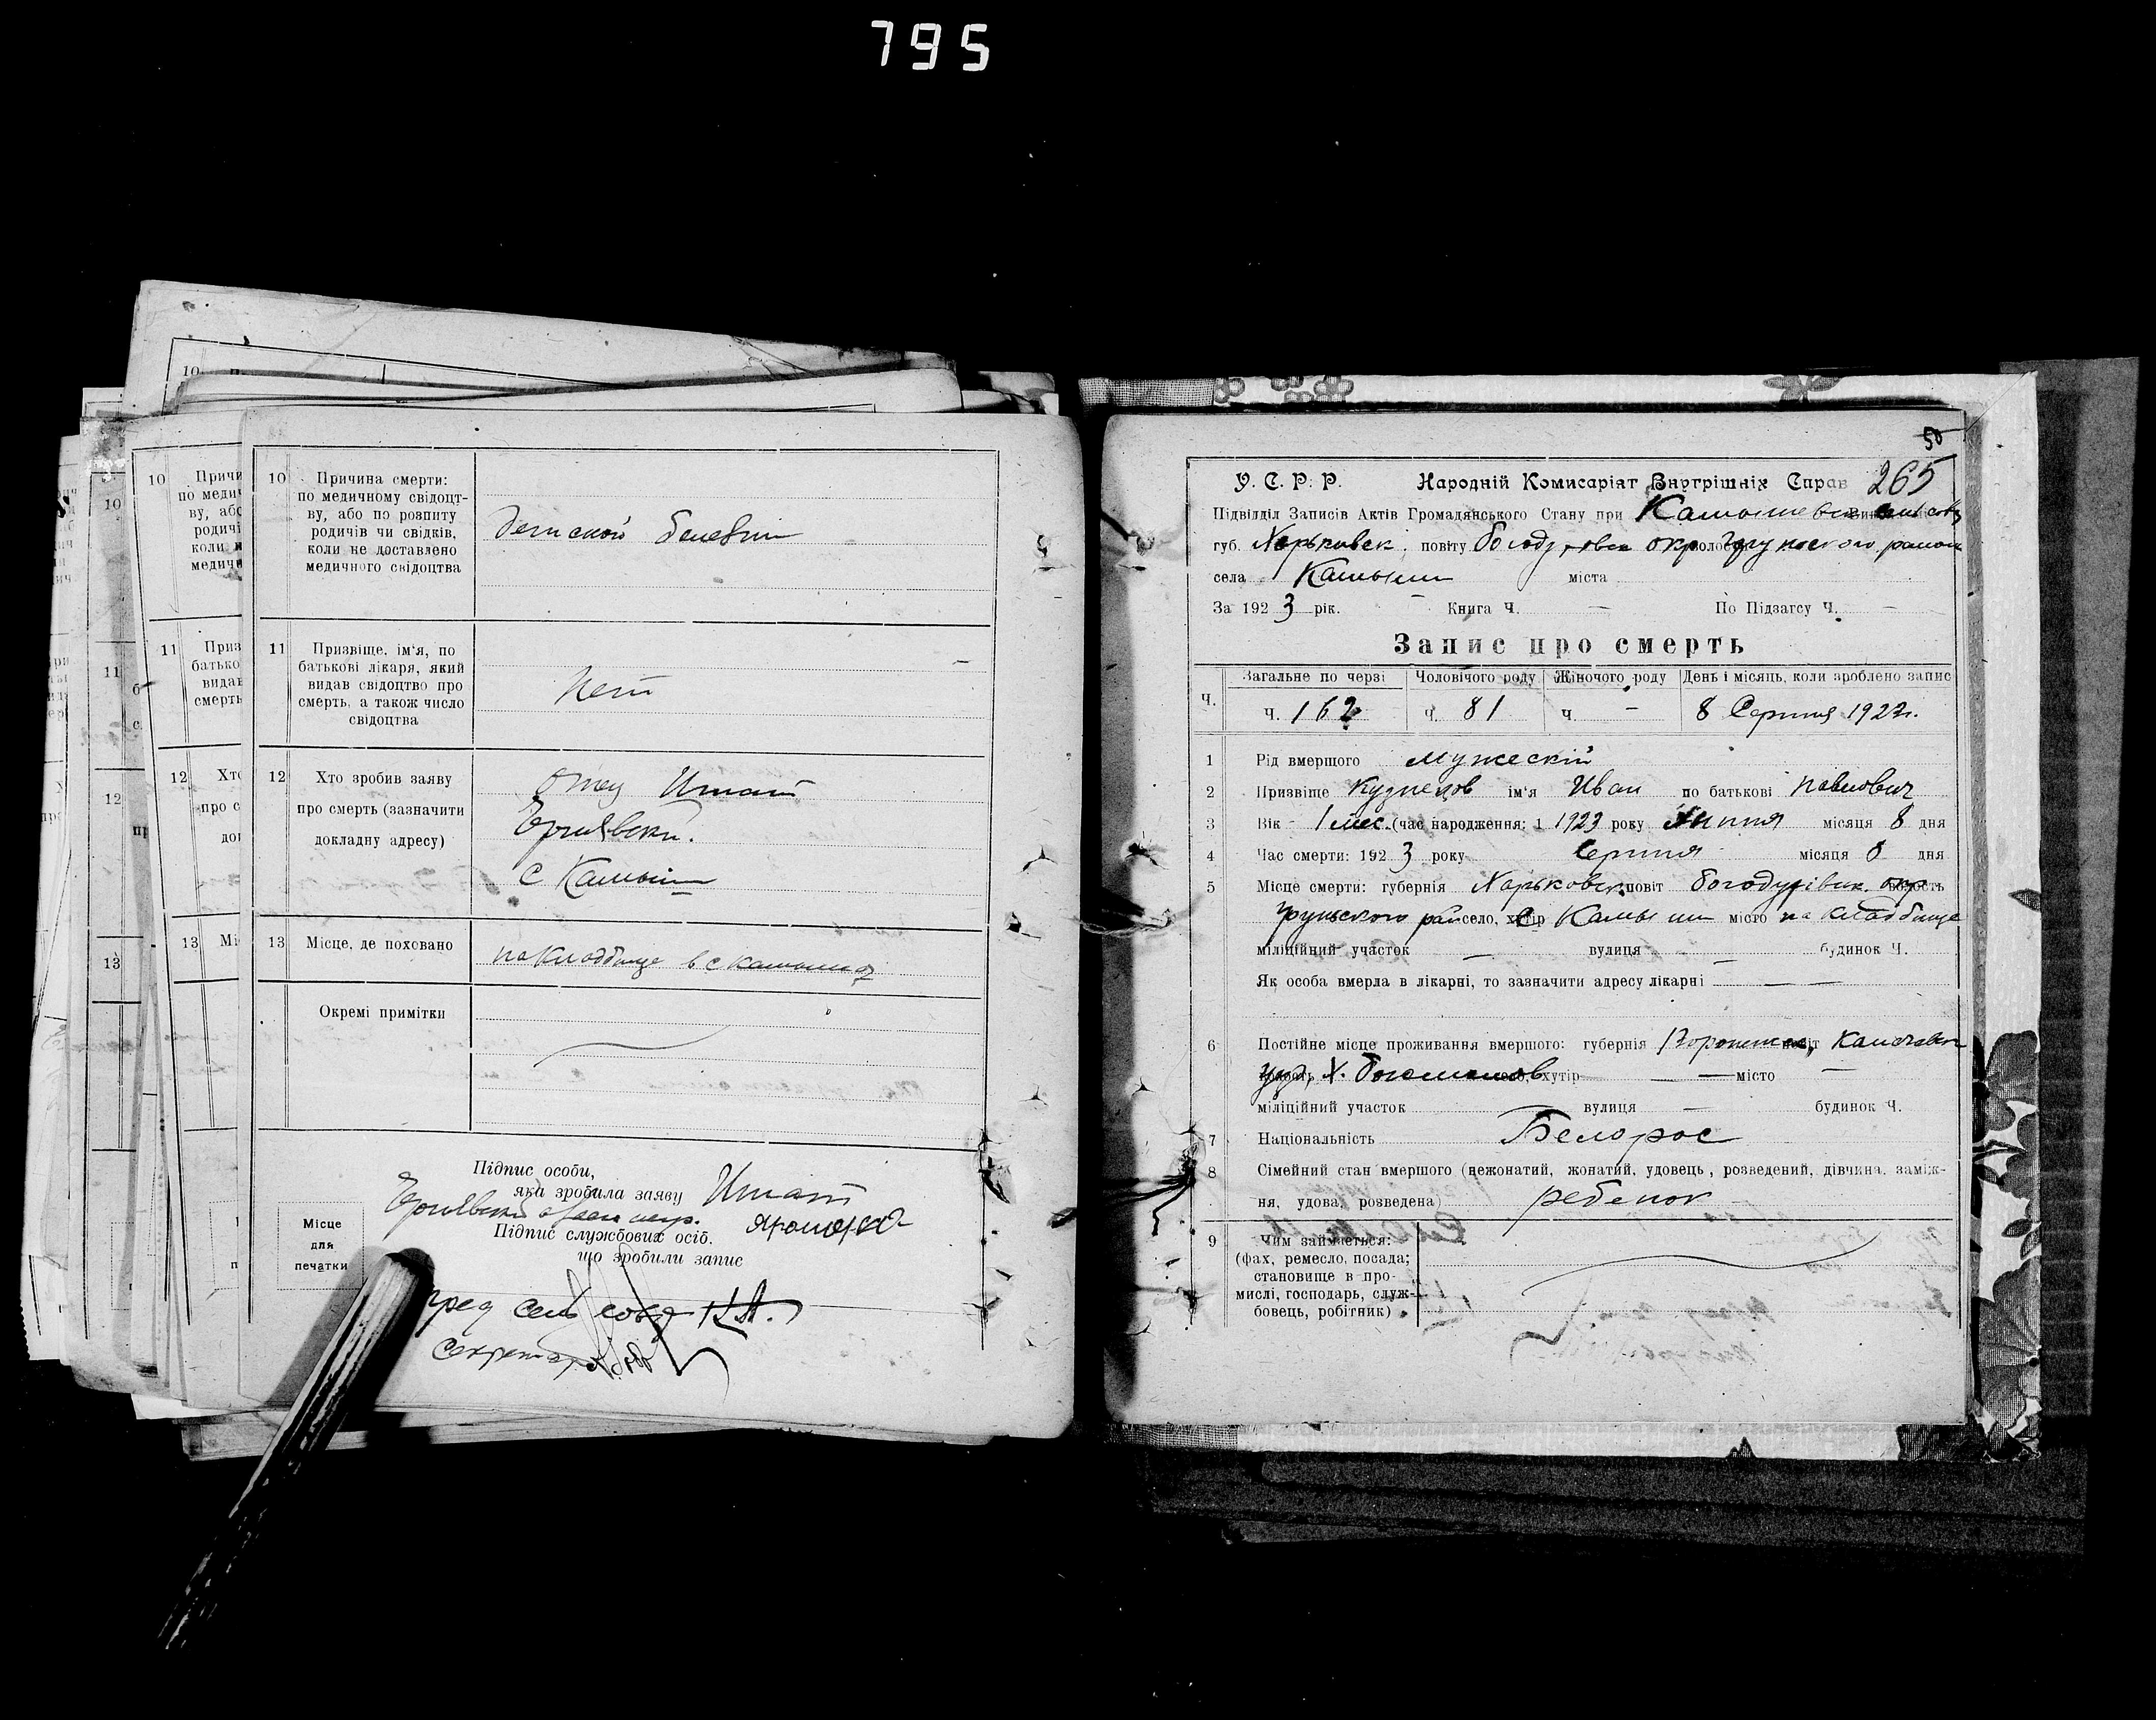 795
10
Причина смерти:
по медичному свідоцт-
ву, або по розпиту
родичів чи свідків,
коли не доставлено
медичного свідоцтва
детской болезни
11
Призвіще, ім'я, по
батькові лікаря, який
видав свідоцтво про
смерть, а також число
свідоцтва
нет
12
Хто зробив заяву
про смерть (зазначити
докладну адресу)
отец Игнат
с Камыши
13
Місце, де поховано
на кладбище в с камышах
Окремі примітки
Підпис особи,
яка зробила заяву Игнат
Підпис службових осіб,
що зробили запис
Місце
для
печатки
пред сель
секретарь
50
У. С. Р. Р. Народній Комисаріят Внутрішніх Справ 265
Підвідділ Записів Актів Громадянського Стану при
губ. Харьковск. повіту Богодуховск окр района
села Камыши міста
За 1923 рік. Книга Ч. — По Підзагсу Ч. —
Запис про смерть
Ч. Загальне по черзі Чоловічого роду Жіночого роду День і місяць, коли зроблено запис
Ч. 162 Ч. 81 Ч — 8 Серпня 1923г.
1 Рід вмершого мужескій
2 Призвіще Кузнецов ім'я Иван по батькові Павлович
3 Вік - 1 мес. (час народження: 1 1923 року Липня місяця 8 дня
4 Час смерти: 1923 року Серпня місяця 8 дня
5 Місце смерти: губернія Харьковск. повіт Богодухівск. окр
грунського рай село, хутір С Камыши місто на кладбище
міліційний участок — вулиця — будинок Ч.
Як особа вмерла в лікарні, то зазначити адресу лікарні — —
6 Постійне місце проживання вмершого: губернія Воронежск,
уезд, Х. хутір — місто —
міліційний участок вулиця — будинок Ч.
7 Національність Белорос
8 Сімейний стан вмершого (нежонатий, жонатий, удовець, розведений, дівчина, заміж-
ня, удова, розведена) ребенок
9 Чим займається:
(фах, ремесло, посада;
становище в про-
мислі, господарь, служ-
бовець, робітник)